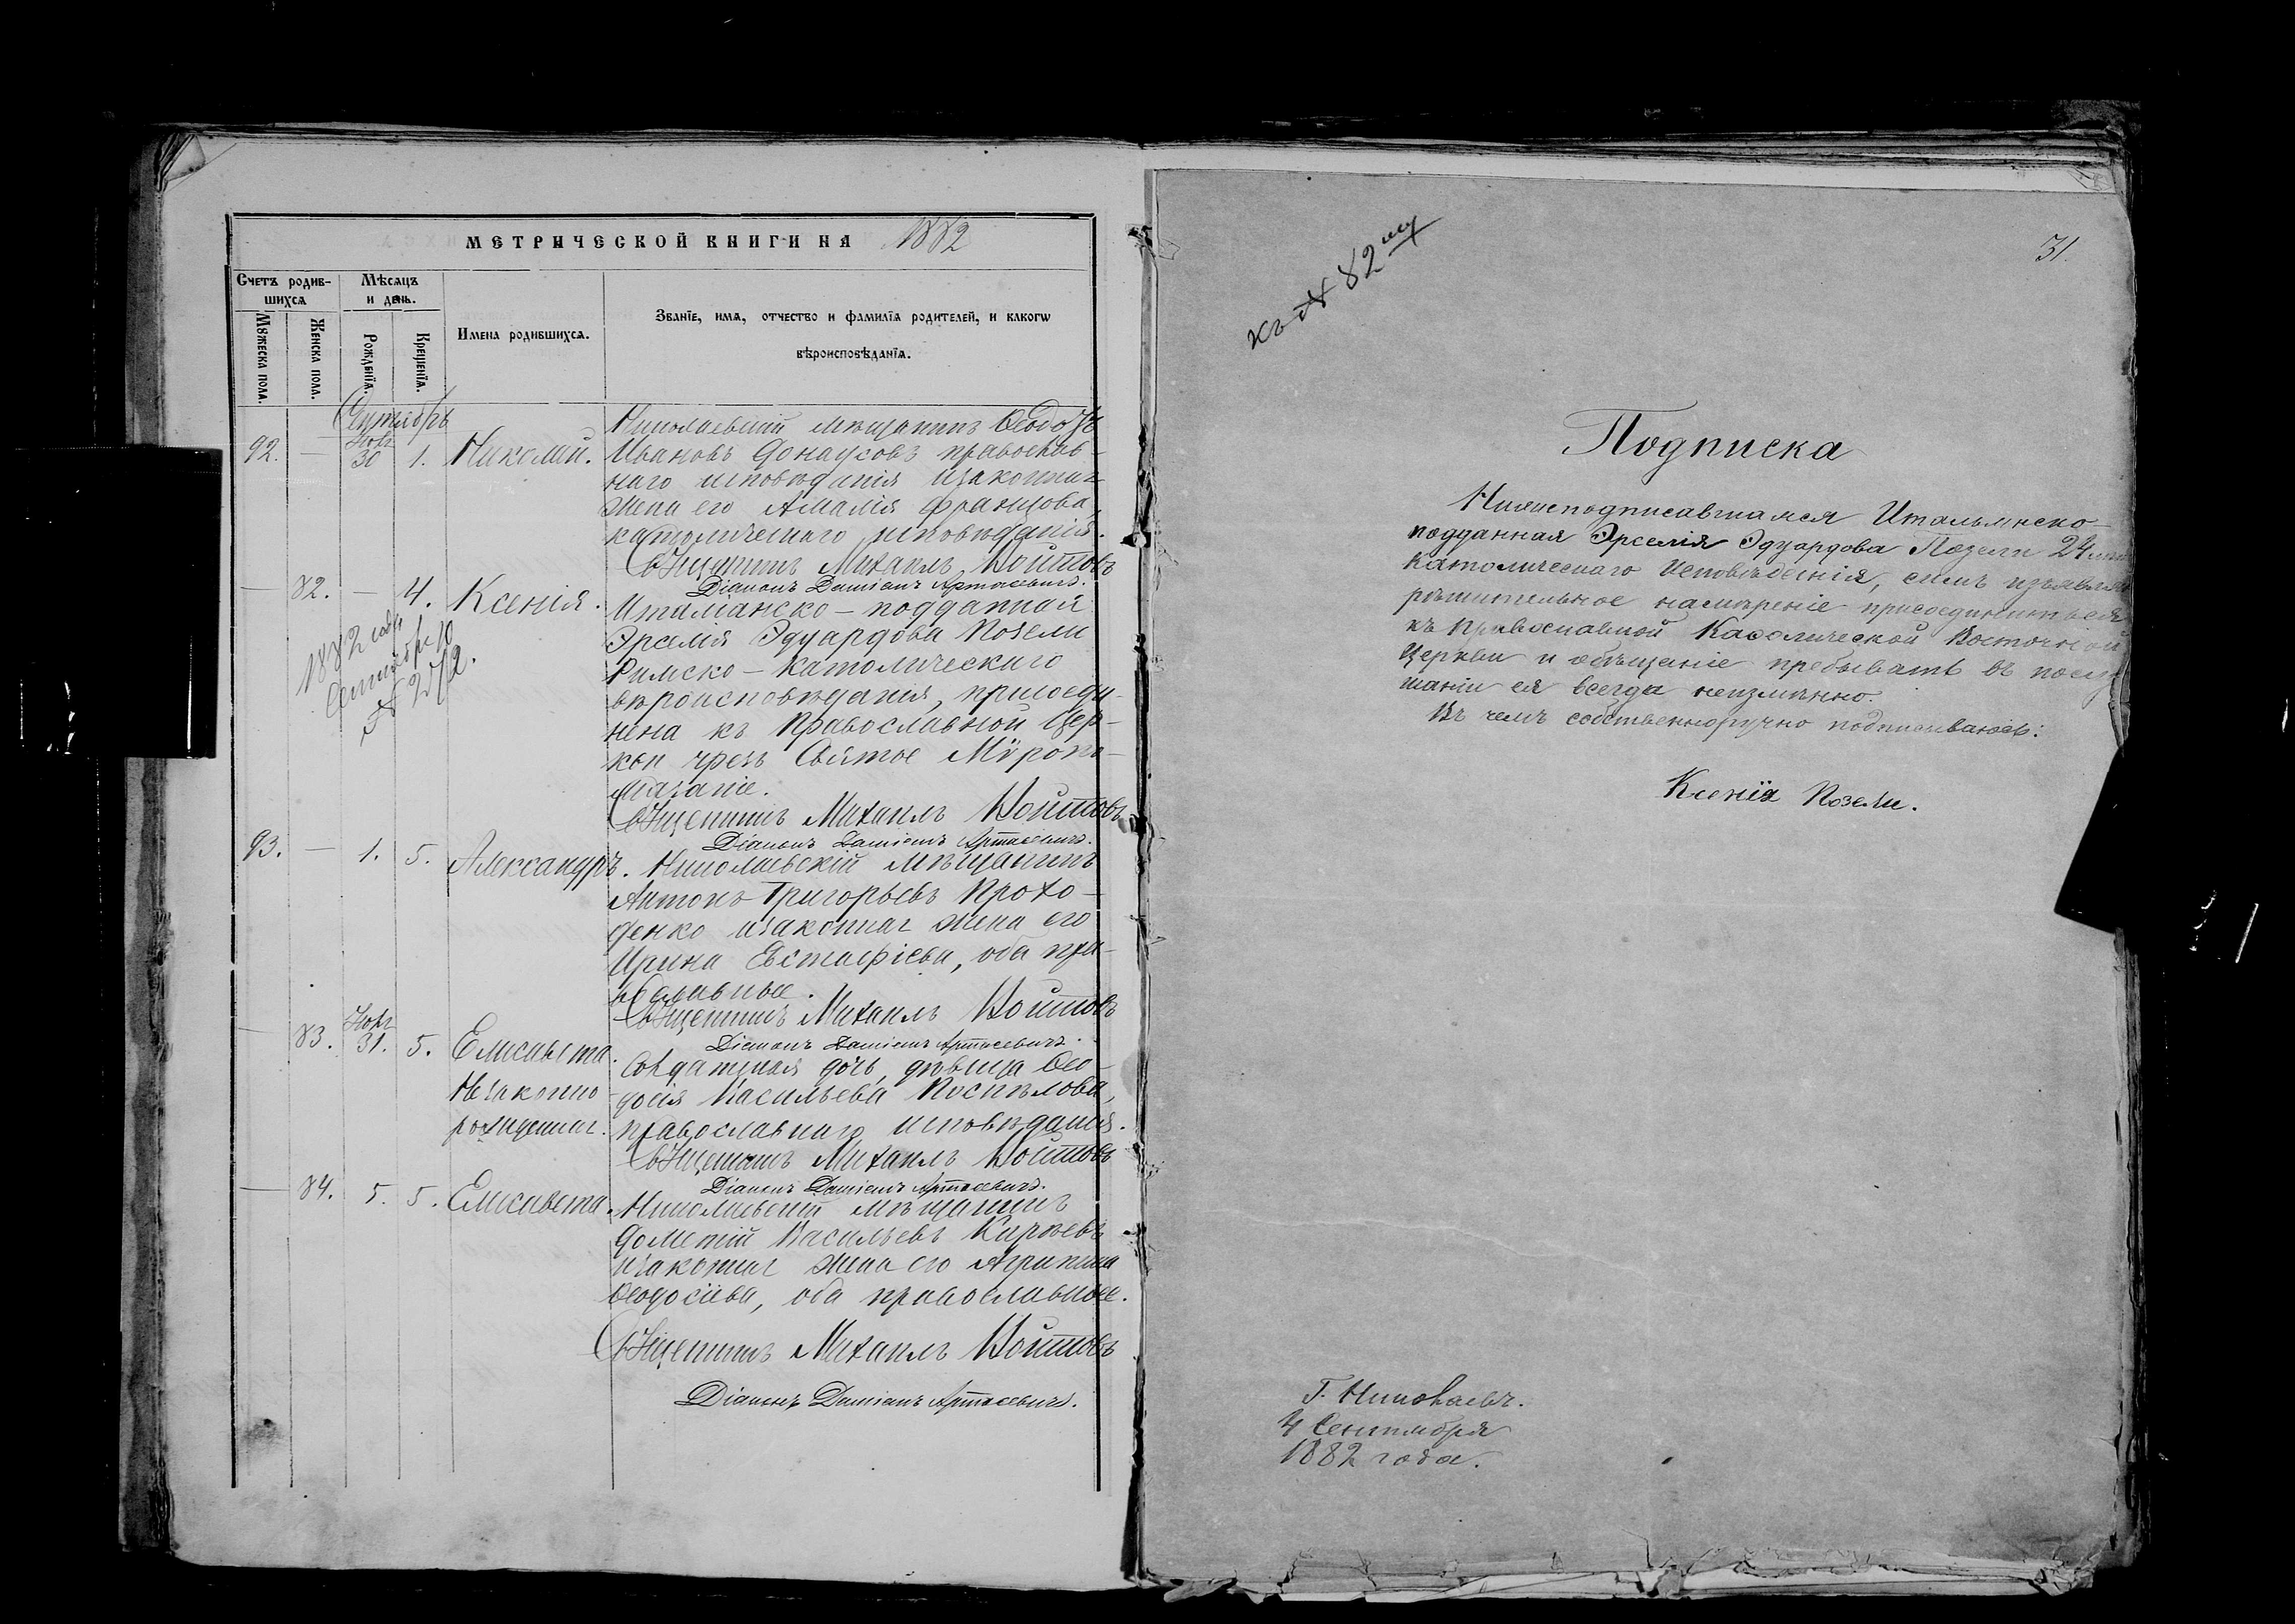 МЕТРИЧЕСКОЙ КНИГИ НА 1882
Счетъ родив-
шихся
Мѣсяцъ
и день.
Мꙋжеска пола.
Женска пола.
Рожденїя.
Крещенїя.
Имена родившихся.
Званїе, имя, отчество и фамилїя родителей, и какогѡ
вѣроисповѣданїя.
Сентябрь
92. — 30 1. Николай.
Николаевскій мѣщанинъ Ѳеодоръ
Ивановъ православ-
наго исповѣданія изаконная
жена его Амалія Францова,
католическаго исповѣданія.
Священникъ Михаилъ Войтовъ
Діаконъ Даміанъ Артасевичъ.
— 82. — 4. Ксенія.
1882 года
Сентября 10
№ 2572.
Италіанско-подданная
Эрселія Эдуардова Позели
Римско-католическаго
вѣроисповѣданія, присоеди-
нена къ Православной Цер-
кви чрезъ Святое Мѵропо-
мазаніе.
Священникъ Михаилъ Войтовъ
Діаконъ Даміанъ Артасевичъ.
93. — 1. 5. Александръ.
Николаевскій мѣщанинъ
Антонъ Григорьевъ Прохо-
денко изаконная жена его
Ирина Евстафіева, оба пра-
вославные.
Священникъ Михаилъ Войтовъ
Діаконъ Даміанъ Артасевичъ.
— 83. 31. 5. Елисавета.
Незаконно
рожденная.
Солдатская дочь, дѣвица Ѳео-
досія Васильева Поспѣлова,
православнаго исповѣданія.
Священникъ Михаилъ Войтовъ
Діаконъ Даміанъ Артасевичъ.
— 84. 5. 5. Елисавета.
Николаевскій мѣщанинъ
Дометій Васильевъ Кирѣевъ
изаконная жена его Агрипина
Ѳеодосіева, оба православные.
Священникъ Михаилъ Войтовъ
Діаконъ Даміанъ Артасевичъ.
къ № 82му
31.
Подписка
Нижеподписавшаяся Итальянско-
подданная Эрселія Эдуардова Позели 24 лѣтъ
Католическаго Исповѣденія, симъ изъявляю
рѣшительное намѣреніе присоединиться
къ Православной Каѳолической Восточной
Церкви и обѣщаніе пребывать въ послу
шаніи ея всегда неизмѣнно.
Въ чемъ собственноручно подписываюсь:
Ксенія Позели.
Г. Николаевъ.
4 Сентября
1882 года.